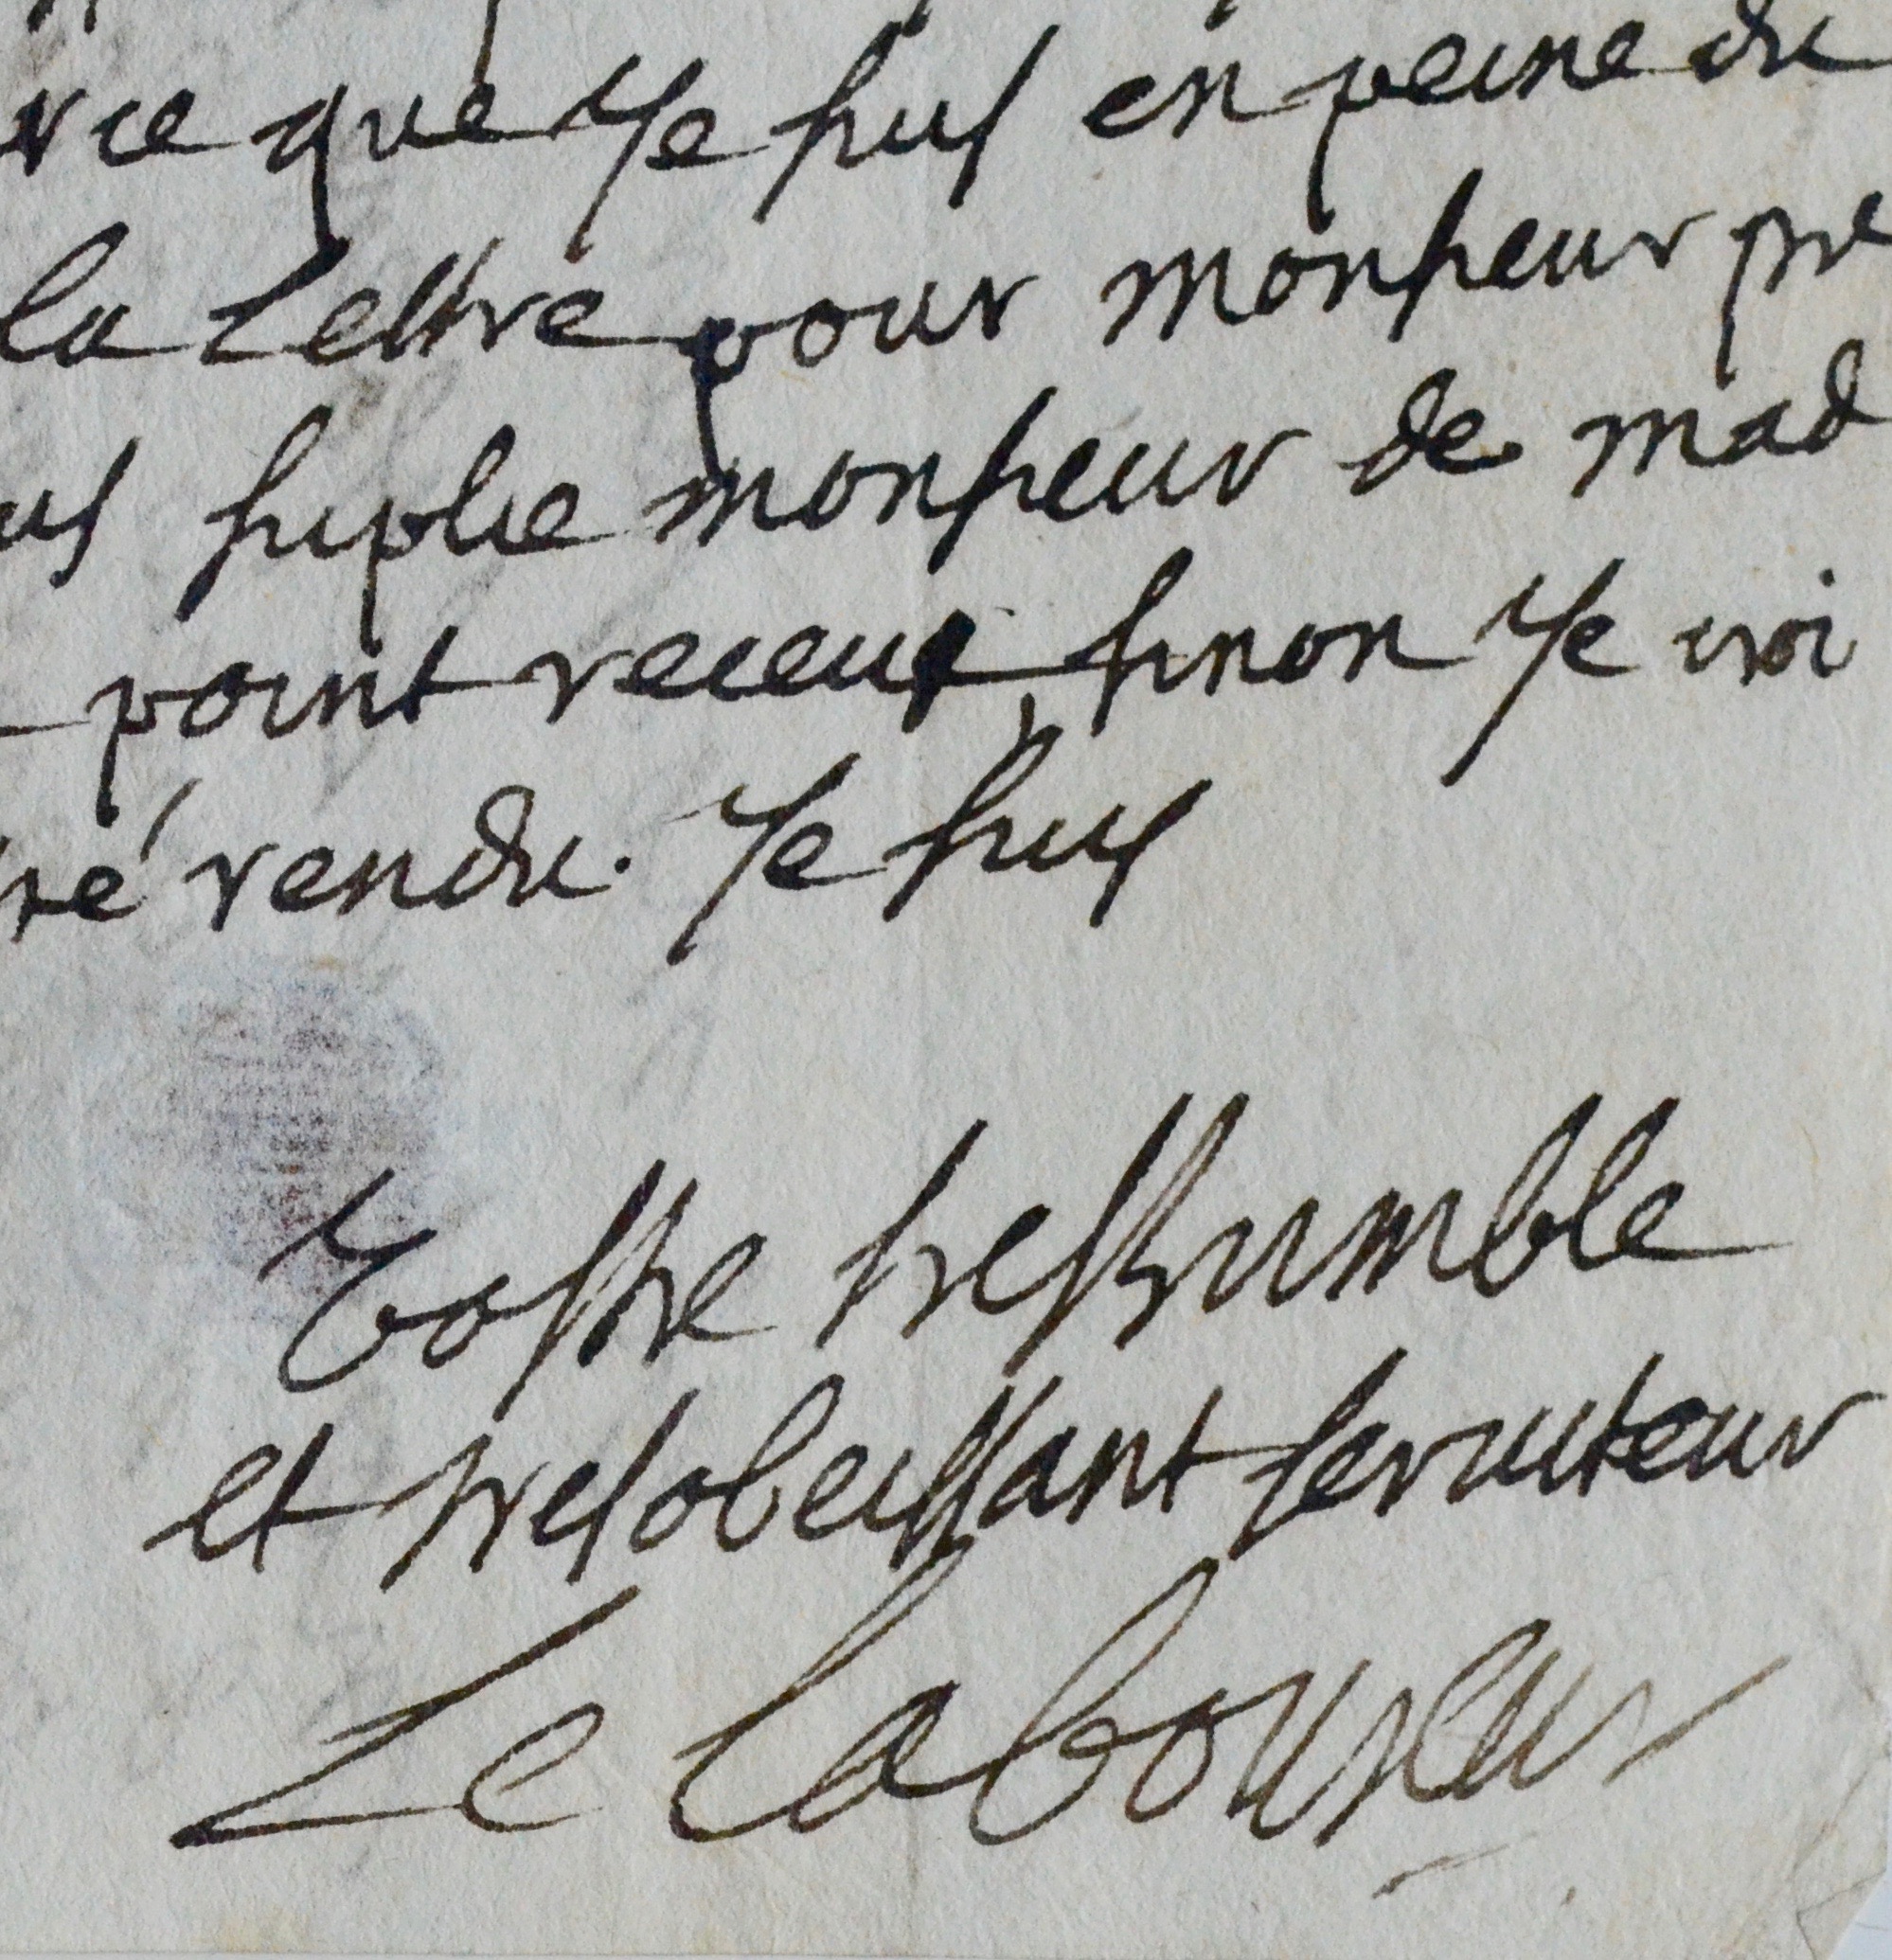 rce que Je suis en peine du
la Lettre pour monsieur pre
us suplie monsieur de mad
point receue sinon Je croi
ré rendu. Je suis
Vostre treshumble
et tresobeissant seruiteur
Le Laboureur